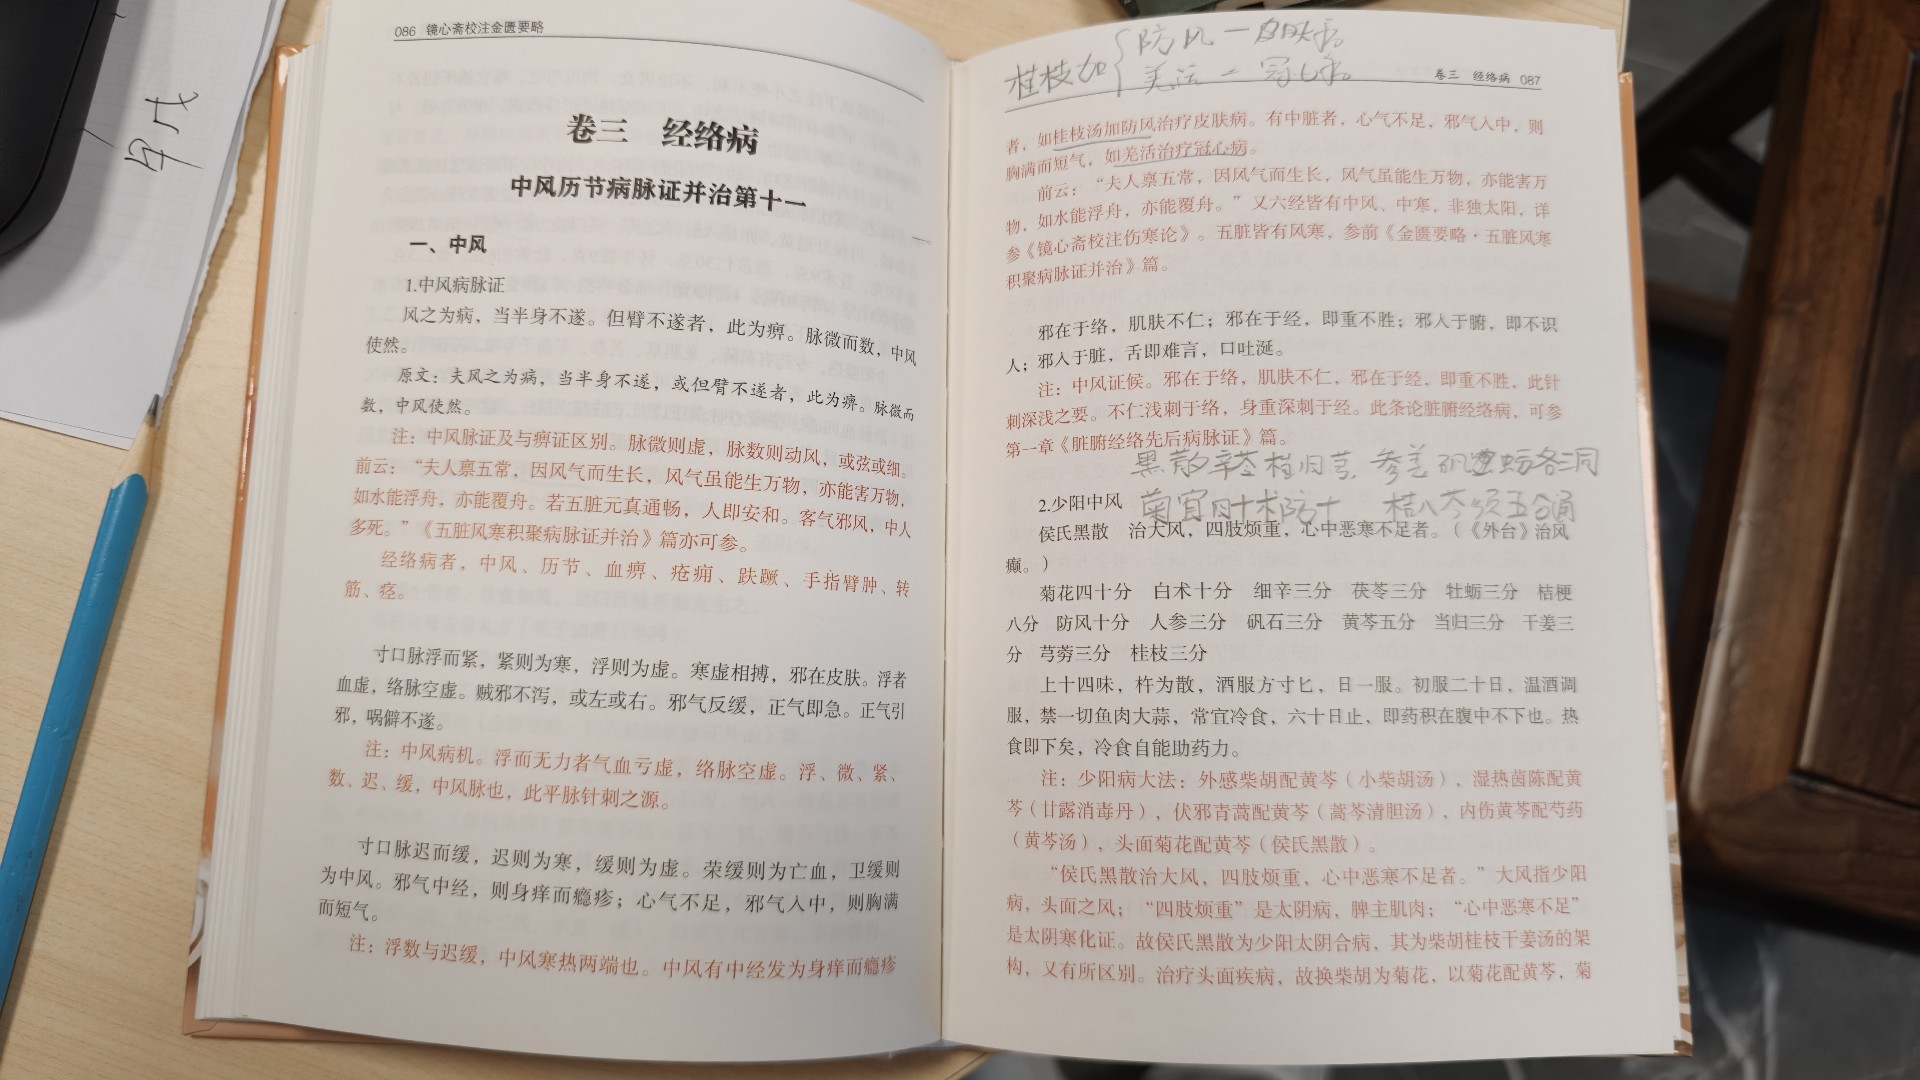 086 镜心斋校注金匮要略
卷三 经络病
中风历节病脉证并治第十一
一、中风
1.中风病脉证
风之为病，当半身不遂。但臂不遂者，此为痹。脉微而数，中风
使然。
原文：夫风之为病，当半身不遂，或但臂不遂者，此为痹。脉微而
数，中风使然。
注：中风脉证及与痹证区别。脉微则虚，脉数则动风，或弦或细。
前云：“夫人禀五常，因风气而生长，风气虽能生万物，亦能害万物，
如水能浮舟，亦能覆舟。若五脏元真通畅，人即安和。客气邪风，中人
多死。”《五脏风寒积聚病脉证并治》篇亦可参。
经络病者，中风、历节、血痹、疮痈、趺蹶、手指臂肿、转
筋、痉。
寸口脉浮而紧，紧则为寒，浮则为虚。寒虚相搏，邪在皮肤。浮者
血虚，络脉空虚。贼邪不泻，或左或右。邪气反缓，正气即急。正气引
邪，㖞僻不遂。
注：中风病机。浮而无力者气血亏虚，络脉空虚。浮、微、紧、
数、迟、缓，中风脉也，此平脉针刺之源。
寸口脉迟而缓，迟则为寒，缓则为虚。荣缓则为亡血，卫缓则
为中风。邪气中经，则身痒而瘾疹；心气不足，邪气入中，则胸满
而短气。
注：浮数与迟缓，中风寒热两端也。中风有中经发为身痒而瘾疹
桂枝加 防风—皮肤病
羌活—冠心病
卷三 经络病 087
者，如桂枝汤加防风治疗皮肤病。有中脏者，心气不足，邪气入中，则
胸满而短气，如羌活治疗冠心病。
前云：“夫人禀五常，因风气而生长，风气虽能生万物，亦能害万
物，如水能浮舟，亦能覆舟。”又六经皆有中风、中寒，非独太阳，详
参《镜心斋校注伤寒论》。五脏皆有风寒，参前《金匮要略·五脏风寒
积聚病脉证并治》篇。
邪在于络，肌肤不仁；邪在于经，即重不胜；邪入于腑，即不识
人；邪入于脏，舌即难言，口吐涎。
注：中风证候。邪在于络，肌肤不仁，邪在于经，即重不胜，此针
刺深浅之要。不仁浅刺于络，身重深刺于经。此条论脏腑经络病，可参
第一章《脏腑经络先后病脉证》篇。
黑散辛苓桂归芎 参姜矾 蛎各三同
2.少阳中风
菊宜四十术防十 桔八芩须五合通
侯氏黑散 治大风，四肢烦重，心中恶寒不足者。（《外台》治风
癫。）
菊花四十分 白术十分 细辛三分 茯苓三分 牡蛎三分 桔梗
八分 防风十分 人参三分 矾石三分 黄芩五分 当归三分 干姜三
分 芎䓖三分 桂枝三分
上十四味，杵为散，酒服方寸匕，日一服。初服二十日，温酒调
服，禁一切鱼肉大蒜，常宜冷食，六十日止，即药积在腹中不下也。热
食即下矣，冷食自能助药力。
注：少阳病大法：外感柴胡配黄芩（小柴胡汤），湿热茵陈配黄
芩（甘露消毒丹），伏邪青蒿配黄芩（蒿芩清胆汤），内伤黄芩配芍药
（黄芩汤），头面菊花配黄芩（侯氏黑散）。
“侯氏黑散治大风，四肢烦重，心中恶寒不足者。”大风指少阳
病，头面之风；“四肢烦重”是太阴病，脾主肌肉；“心中恶寒不足”
是太阴寒化证。故侯氏黑散为少阳太阴合病，其为柴胡桂枝干姜汤的架
构，又有所区别。治疗头面疾病，故换柴胡为菊花，以菊花配黄芩，菊